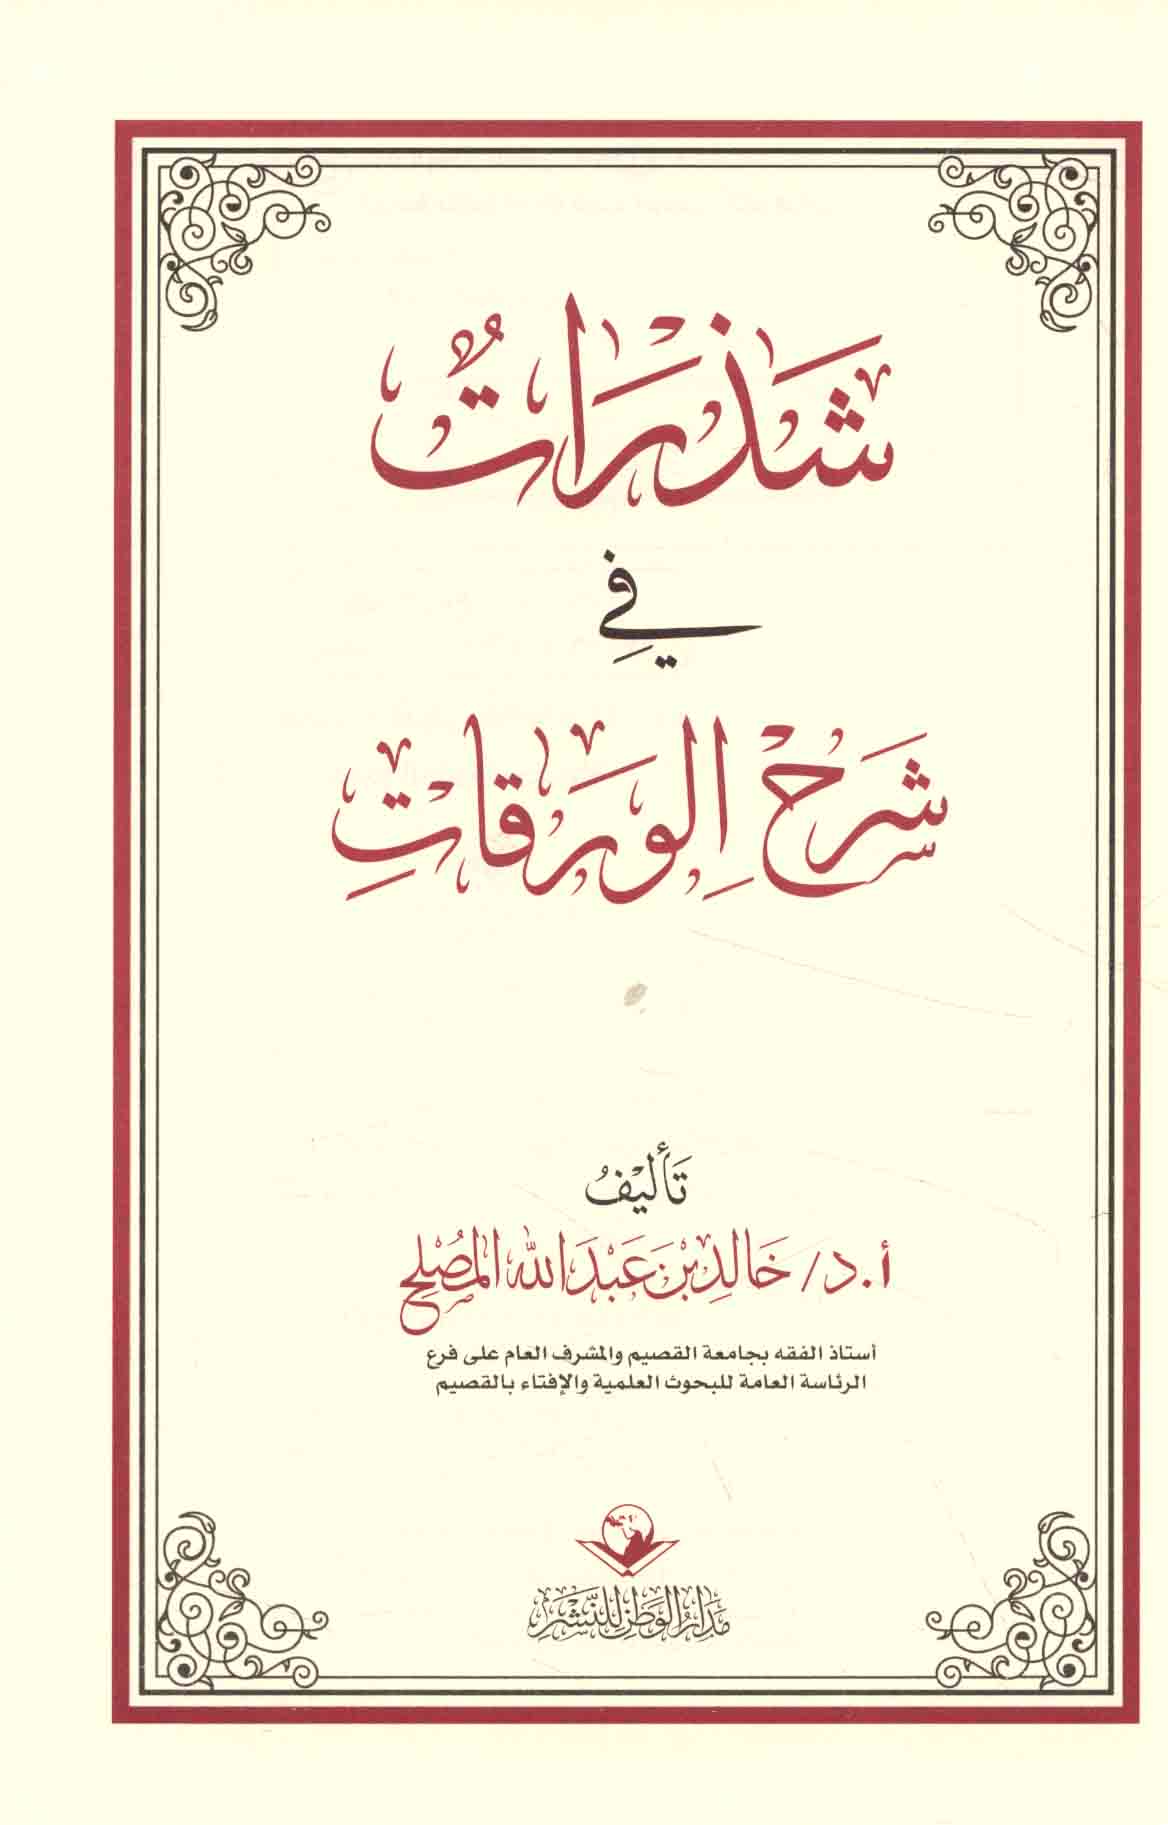 شَذَرَاتٌ
فِي
شَرْحِ الوَرَقَاتِ
تَأْلِيْفُ
أ.د/ خَالِد بْن عَبْدَ اللّٰه المُصْلِح
أستاذ الفقه بجامعة القصيم والمشرف العام على فرع
الرئاسة العامة للبحوث العلمية والإفتاء بالقصيم
مَدَارُ الوَطَنِ لِلنَّشْرِ